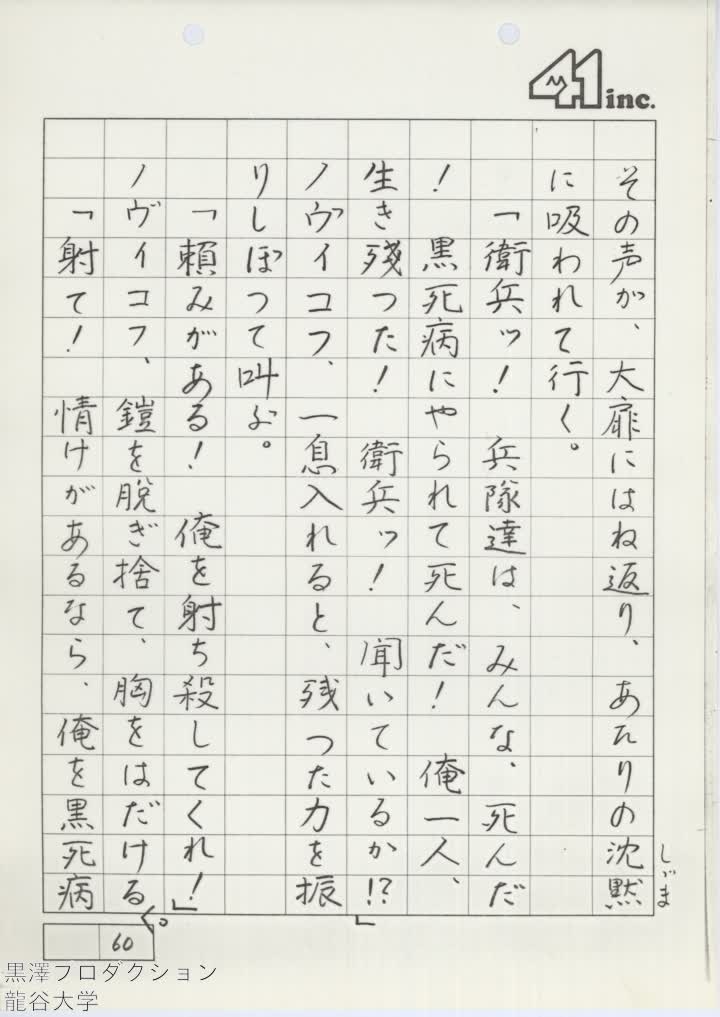 41 inc.
その声が、大扉にはね返り、あたりの沈黙
しゞま
に吸われて行く。
「衛兵ッ！ 兵隊達は、みんな、死んだ
！ 黒死病にやられて死んだ！ 俺一人、
生き残った！ 衛兵ッ！ 聞いているか!?」
ノヴィコフ、一息入れると、残った力を振
りしぼって叫ぶ。
「頼みがある！ 俺を射ち殺してくれ！」
ノヴィコフ、鎧を脱ぎ捨て、胸をはだける。
「射て！ 情けがあるなら、俺を黒死病
く
60
黒澤プロダクション
龍谷大学